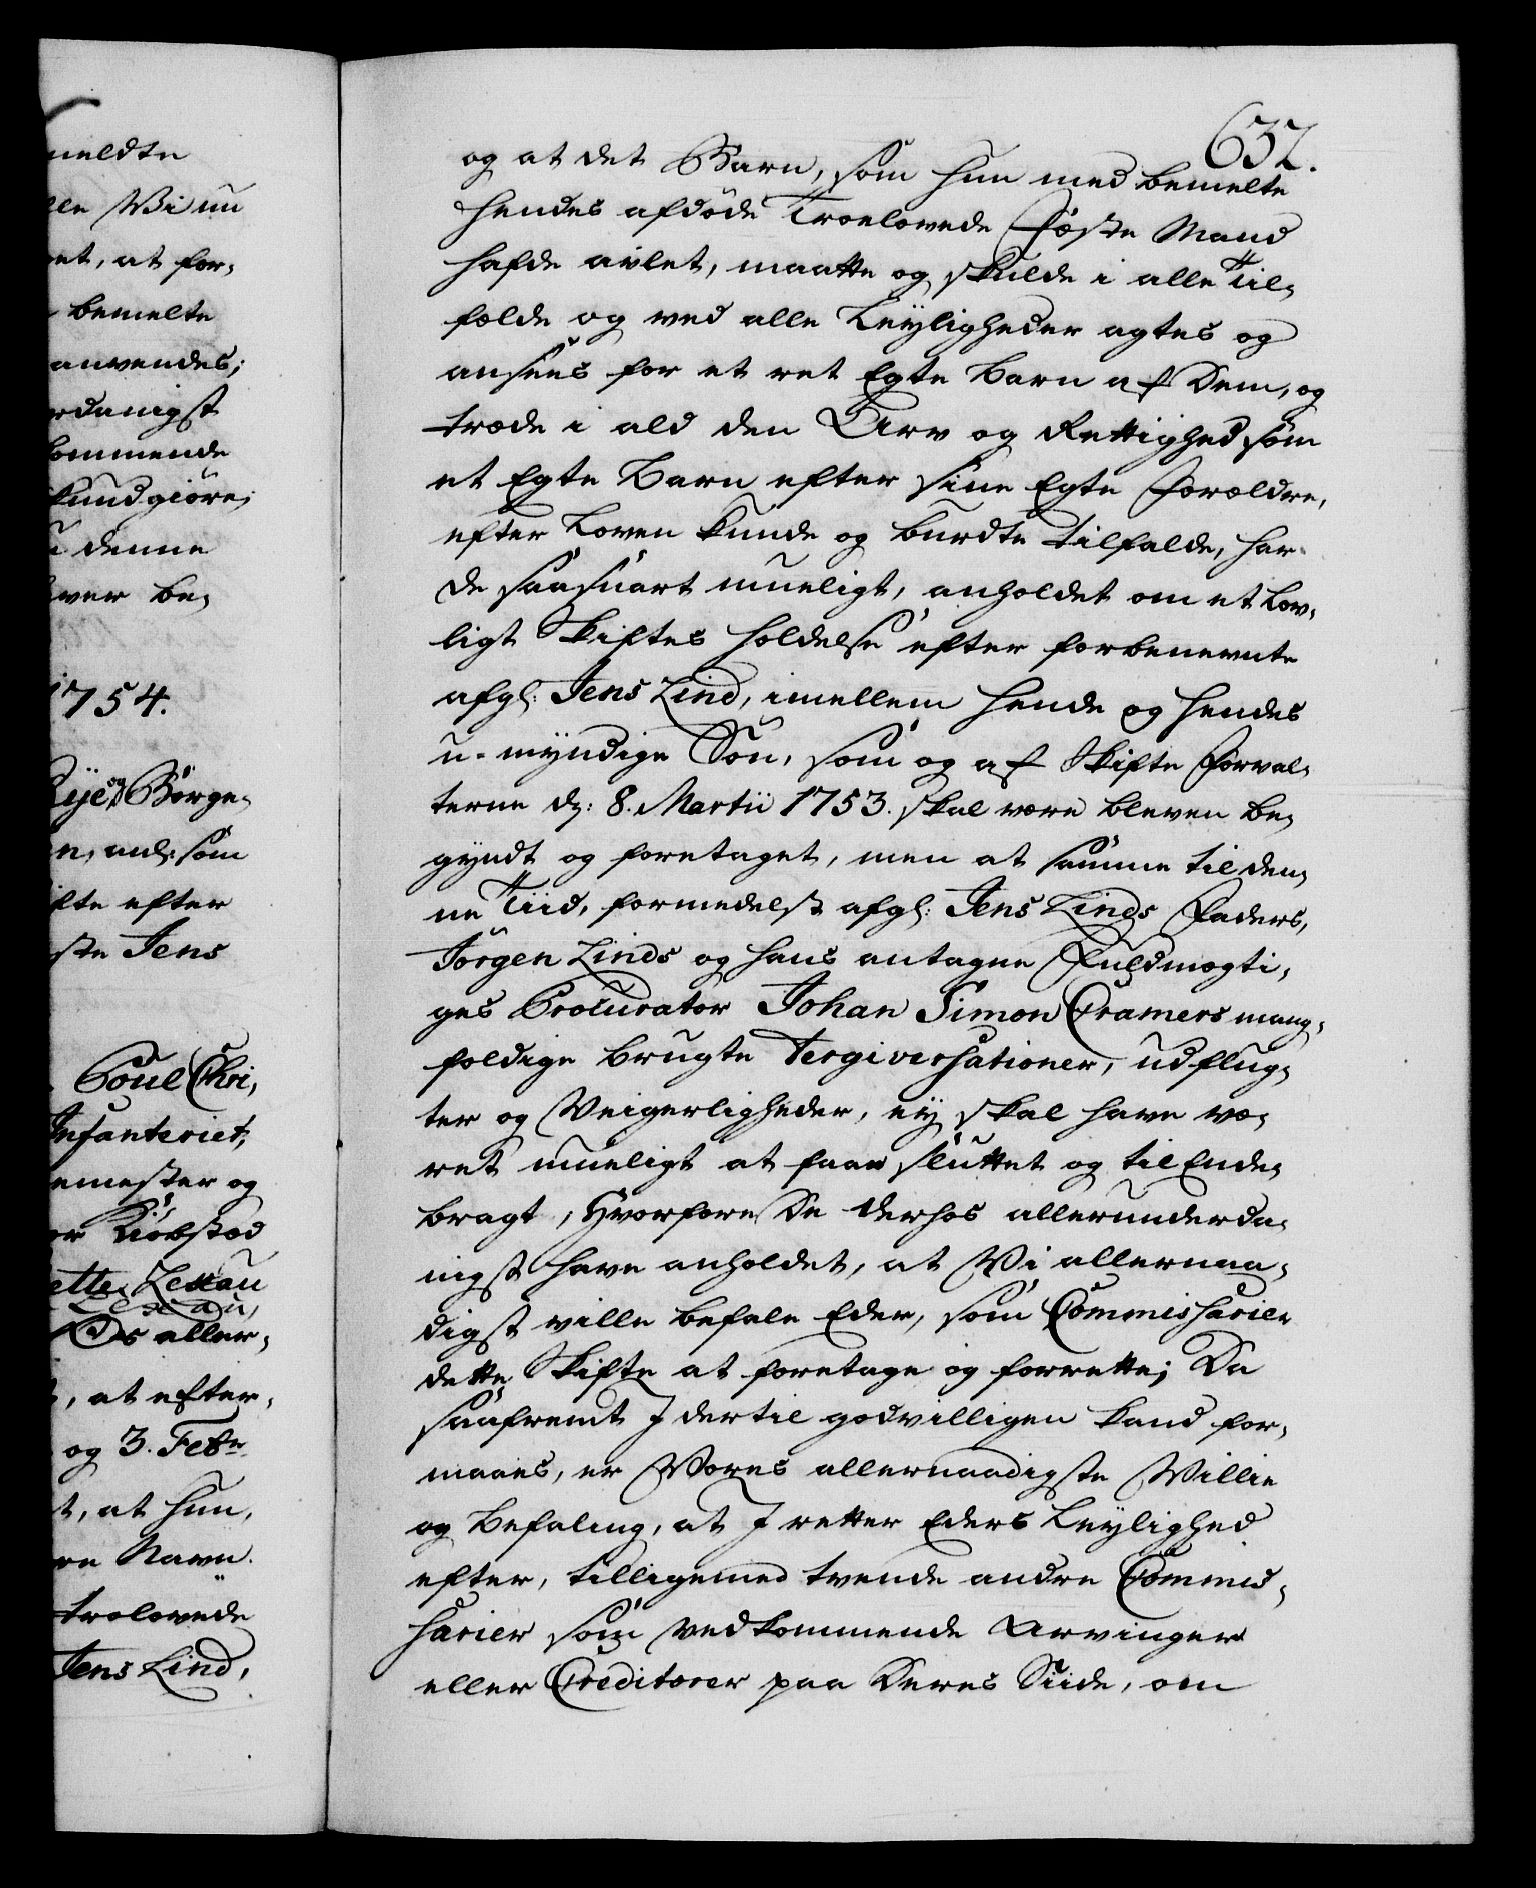 meldte
lle Wi nu
et, at for-
bemelte
anvendes;
rdanigst
kommende
kundgiøre;
denne
ver be-
1754.
Rije og Börge-
n, anl: som
ifte efter
ste Jens
Poul Chri-
Infanteriet,
emester og
or Kiöbstæd
ette Zettau
Os aller-
, at efter-
og 3. Febr
t, at hun,
re Navn
trolovede
Jens Lind,
632.
og at det Barn, som hun med bemelte
hendes afdöde Troelovede Fæste Mand
hafde avlet, maatte og skulde i alle Til-
fælde og ved alle Leyligheder agtes og
ansees for et ret Egte Barn af Dem, og
træde i ald den Arv og Rettighed som
et Egte Barn efter sine Egte Forældre,
efter Loven kunde og burdte tilfalde, har
De saasnart mueligt, anholdet om et Lov-
ligt Skiftes holdelse efter forbenevnte
afgl: Jens Lind, imellem hende og hendes
u-myndige Sön, som og af Skifte Forval-
terne d: 8. Martii 1753. skal være bleven be-
gyndt og foretaget, men at samme til den-
ne Tiid, formedelst afgl: Jens Linds Faders,
Jörgen Linds og hans antagne Fuldmægti-
ges Procurator Johan Simon Cramers mang-
foldige brugte Tergiversationer, udflug-
ter og Veigerligheder, ey skal have væ-
ret mueligt at faae sluttet og til Ende-
bragt, Hvorfore De derhos allerunderda-
nigst have anholdet, at Vi allernaa-
digst ville befale Eder, som Commissarier
dette Skifte at foretage og forrette; Da
saafremt I dertil godvilligen kand for-
maaes, er Vores allernaadigste Villie
og Befaling, at I retter Eders Leylighed
efter, tilligemed tvende andre Commis-
sarier som vedkommende Arvinger
eller Creditorer paa Deres Siide, om